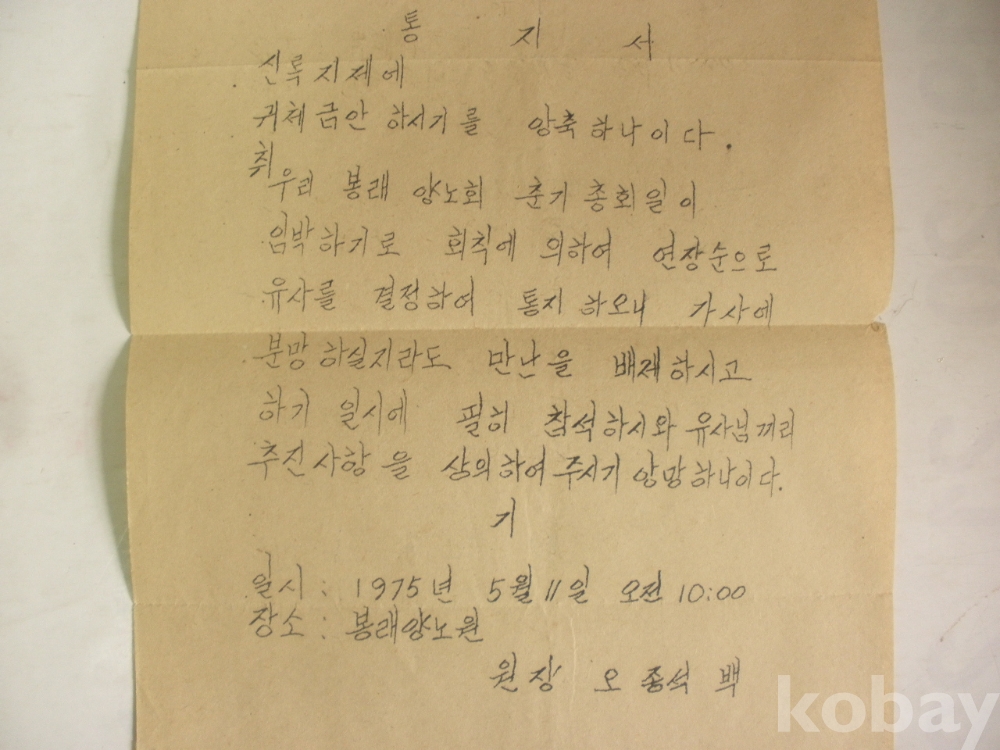 통 지 서
신록지제에
귀체금안 하시기를 앙축하나이다.
취
우리 봉래 양노회 춘기 총회일이
임박하기로 회칙에 의하여 연장순으로
유사를 결정하여 통지 하오니 가사에
분망하실지라도 만난을 배제하시고
하기 일시에 필히 참석하시와 유사님끼리
추진사항을 상의하여주시기 앙망하나이다.
기
일시 : 1975년 5월 11일 오전 10:00
장소 : 봉래양노원
원장 오종석 백
kobay